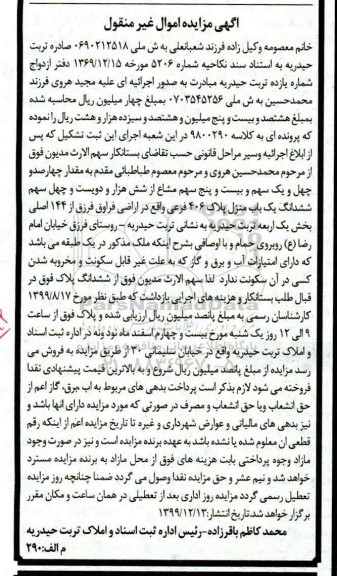 آگهی مزایده اموال غیر منقول
خانم معصومه وکیل زاده فرزند شعبانعلی به ش ملی ۰۶۹۰۲۱۲۵۱۸ صادره تربت
حیدریه به استناد سند نکاحیه شماره ۵۲۰۶ مورخه ۱۳۶۹/۱۲/۱۵ دفتر ازدواج
شماره یازده تربت حیدریه مبادرت به صدور اجرائیه ای علیه مجید هروی فرزند
محمدحسین به ش ملی ۰۷۰۳۵۴۵۲۵۶ بمبلغ چهار میلیون ریال محاسبه شده
بمبلغ هشتصد و بیست و پنج میلیون و هشتصد و سیزده هزار و هشت ریال را نموده
که پرونده ای به کلاسه ۹۸۰۰۲۹۰ در این شعبه اجرای این ثبت تشکیل که پس
از ابلاغ اجرائیه وسیر مراحل قانونی حسب تقاضای بستانکار سهم الارث مدیون فوق
از مرحوم محمدحسین هروی و مرحوم معصوم طباطبائی مقدم به مقدار چهارصدو
چهل و یک سهم و بیست و پنج سهم مشاع از شش هزار و دویست و چهل سهم
ششدانگ یک باب منزل پلاک ۴۰۶ فرعی واقع در اراضی فراوق فرزق از ۱۴۴ اصلی
بخش یک اربعه تربت حیدریه به نشانی تربت حیدریه - روستای فرزق خیابان امام
رضا (ع) روبروی حمام و با اوصافی بشرح اینکه ملک مذکور در یک طبقه می باشد
که دارای امتیازات آب و برق و گاز که به علت غیر قابل سکونت و مخروبه شدن
کسی در آن سکونت ندارد لذا سهم الارث مدیون فوق از ششدانگ پلاک فوق در
قبال طلب بستانکار و هزینه های اجرایی بازداشت که طبق نظر مورخ ۱۳۹۹/۸/۱۷
کارشناسان رسمی به مبلغ پانصد میلیون ریال ارزیابی شده و پلاک فوق از ساعت
۹ الی ۱۲ روز یک شنبه مورخ بیست و چهارم اسفند ماه نود ونه در اداره ثبت اسناد
و املاک تربت حیدریه واقع در خیابان سلیمانی ۳۰ از طریق مزایده به فروش می
رسد مزایده از مبلغ پانصد میلیون ریال شروع و به بالاترین قیمت پیشنهادی نقدا
فروخته می شود لازم بذکر است پرداخت بدهی های مربوط به آب ،برق، گاز اعم از
حق انشعاب ویا حق انشعاب و مصرف در صورتی که مورد مزایده دارای آنها باشد و
نیز بدهی های مالیاتی و عوارض شهرداری و غیره تا تاریخ مزایده اعم از اینکه رقم
قطعی آن معلوم شده یا نشده باشد به عهده برنده مزایده است و نیز در صورت وجود
مازاد وجوه پرداختی بابت هزینه های فوق از محل مازاد به برنده مزایده مسترد
خواهد شد و نیم عشر و حق مزایده نقدا وصول می گردد ضمنا چنانچه روز مزایده
تعطیل رسمی گردد مزایده روز اداری بعد از تعطیلی در همان ساعت و مکان مقرر
برگزار خواهد شد.تاریخ انتشار:۱۳۹۹/۱۲/۱۲
محمد کاظم باقرزاده-رئیس اداره ثبت اسناد و املاک تربت حیدریه
م الف:۲۹۰